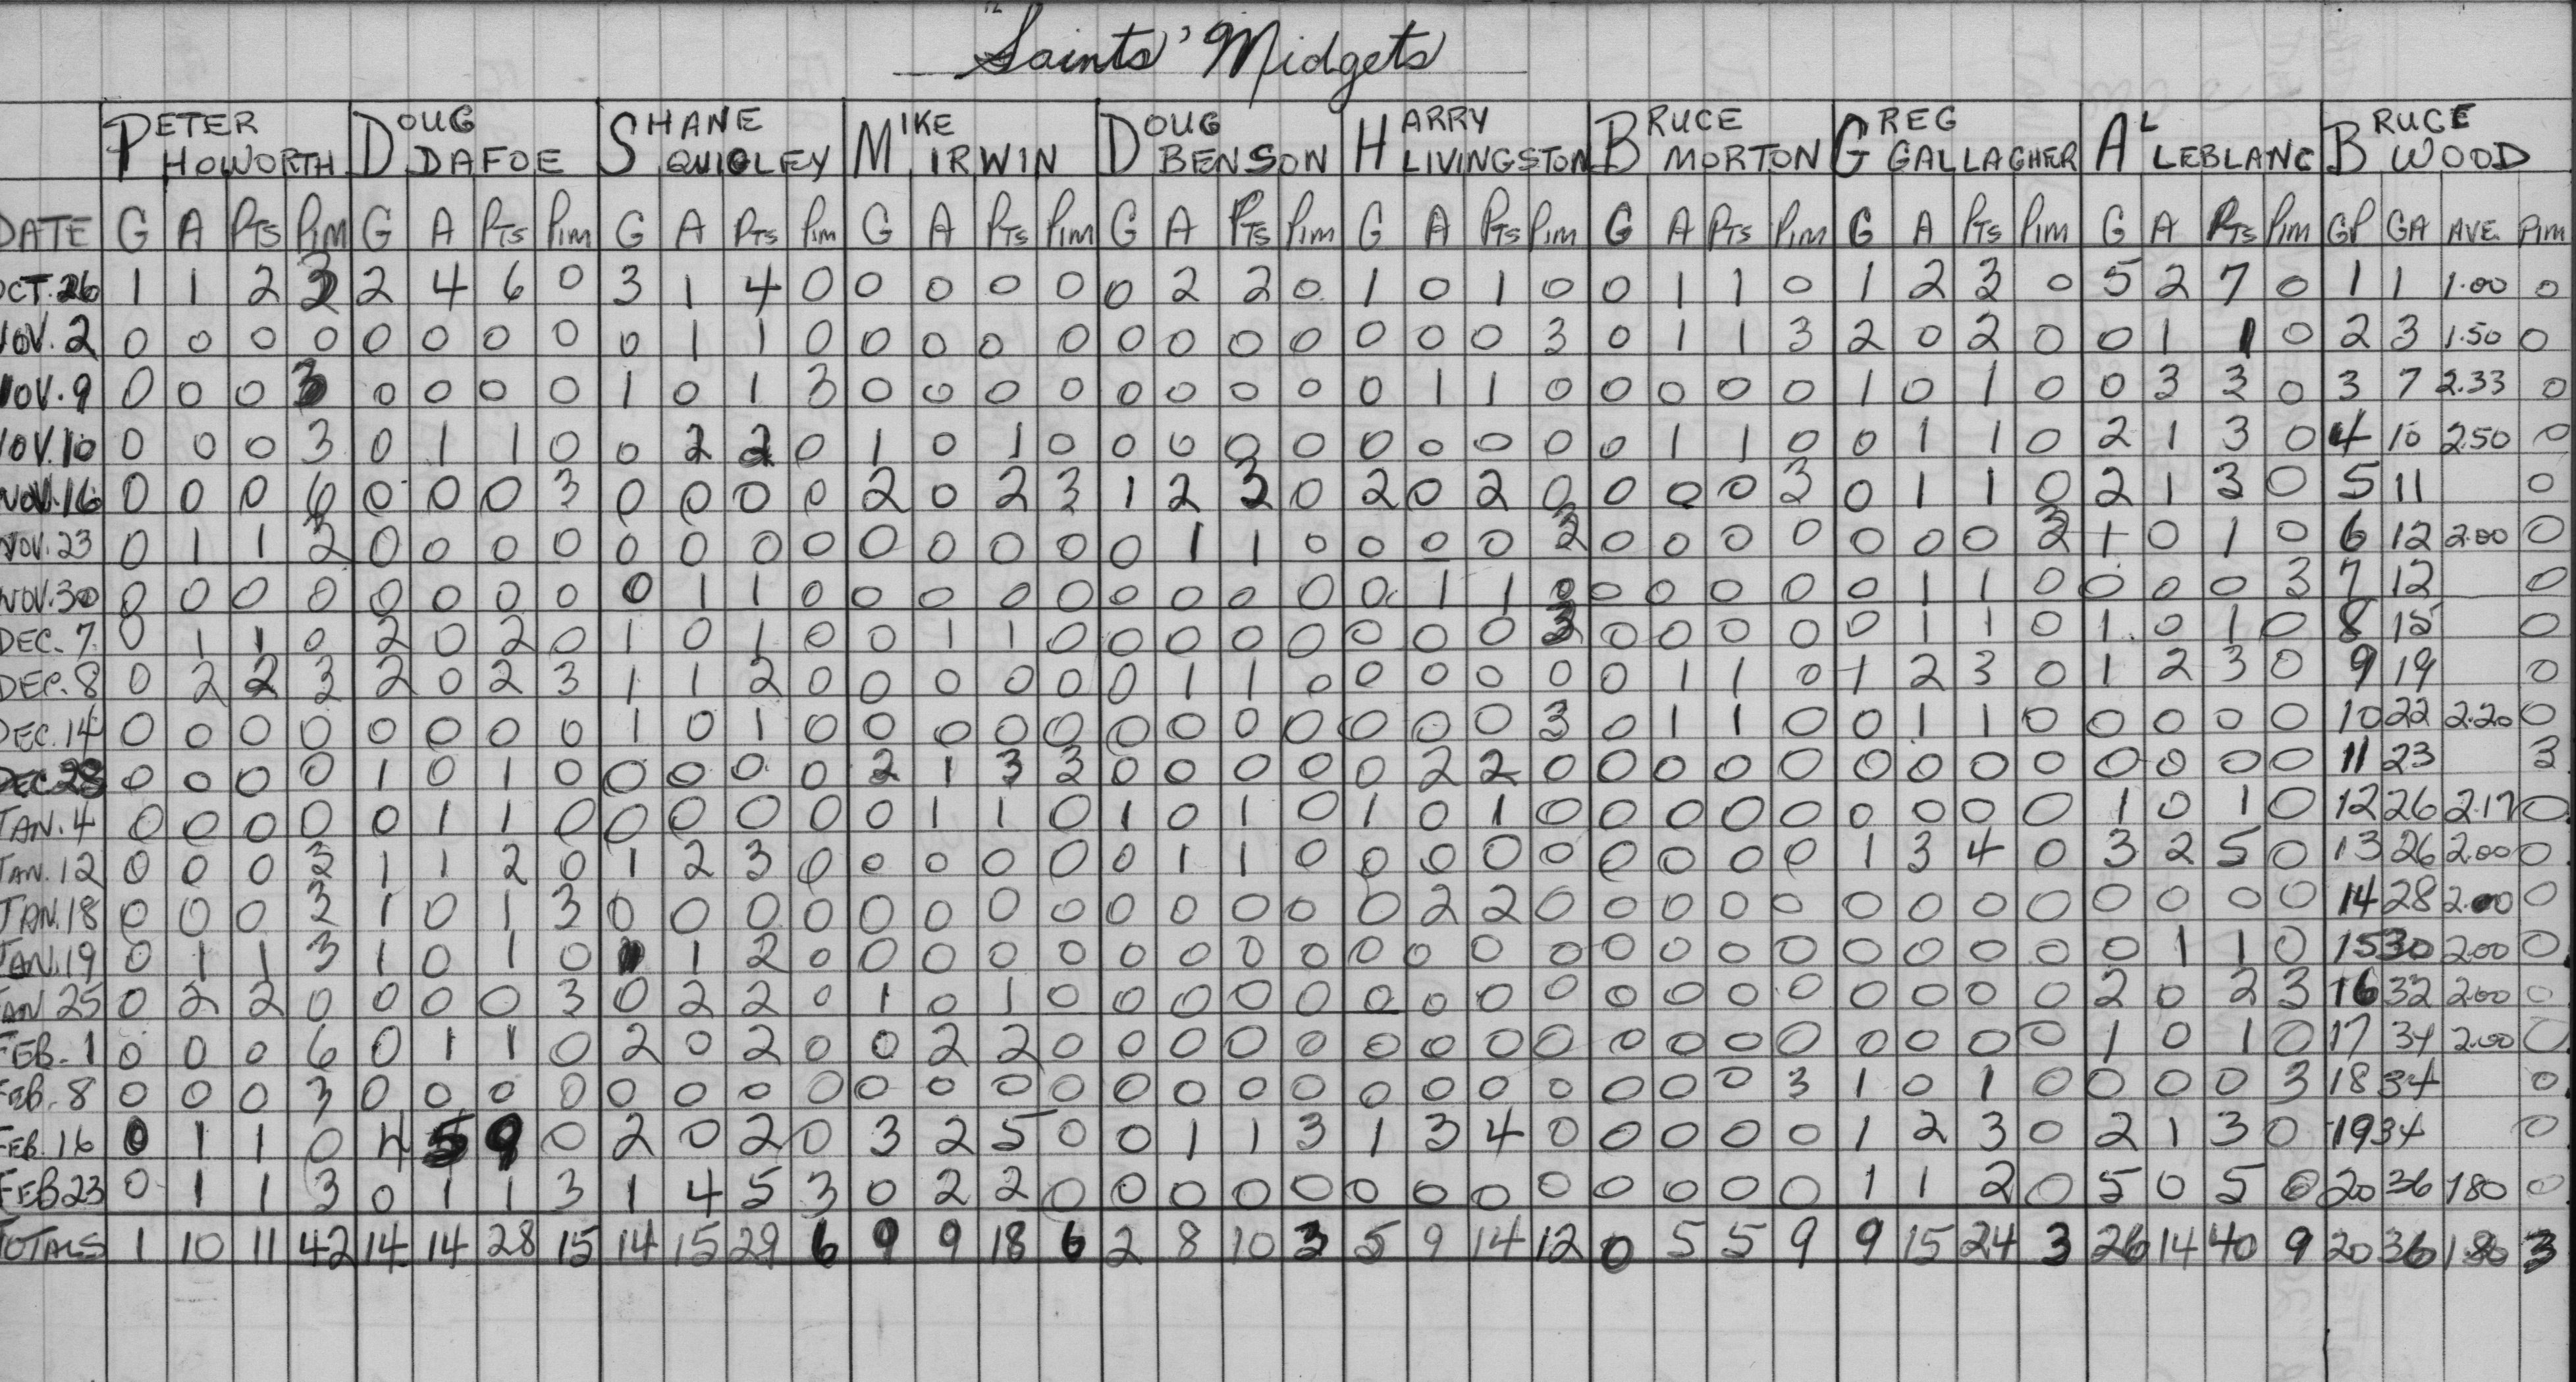 Saints' Midgets
PETER HOWORTH DOUG DAFOE SHANE QUIGLEY MIKE IRWIN DOUG BENSON HARRY LIVINGSTON BRUCE MORTON GREG GALLAGHER AL LEBLANC BRUCE WOOD
DATE G A PTS PIM G A PTS PIM G A PTS PIM G A PTS PIM G A PTS PIM G A PTS PIM G A PTS PIM G A PTS PIM G A PTS PIM GP GA AVE. PIM
OCT. 26 1 1 2 3 2 4 6 0 3 1 4 0 0 0 0 0 0 2 2 0 1 0 1 0 0 1 1 0 1 2 3 0 5 2 7 0 1 1 1.00 0
NOV. 2 0 0 0 0 0 0 0 0 0 1 1 0 0 0 0 0 0 0 0 0 0 0 0 3 0 1 1 3 2 0 2 0 0 1 1 0 2 3 1.50 0
NOV. 9 0 0 0 3 0 0 0 0 1 0 1 3 0 0 0 0 0 0 0 0 0 1 1 0 0 0 0 0 1 0 1 0 0 3 3 0 3 7 2.33 0
NOV. 10 0 0 0 3 0 1 1 0 0 2 2 0 1 0 1 0 0 0 0 0 0 0 0 0 0 1 1 0 0 1 1 0 2 1 3 0 4 10 2.50 0
NOV. 16 0 0 0 6 0 0 0 3 0 0 0 0 2 0 2 3 1 2 3 0 2 0 2 0 0 0 0 3 0 1 1 0 2 1 3 0 5 11 0
NOV. 23 0 1 1 3 0 0 0 0 0 0 0 0 0 0 0 0 0 1 1 0 0 0 0 3 0 0 0 0 0 0 0 3 1 0 1 0 6 12 2.00 0
NOV. 30 0 0 0 0 0 0 0 0 0 1 1 0 0 0 0 0 0 0 0 0 0 1 1 0 0 0 0 0 0 1 1 0 0 0 0 3 7 12 0
DEC. 7 0 1 1 0 2 0 2 0 1 0 1 0 0 1 1 0 0 0 0 0 0 0 0 3 0 0 0 0 0 1 1 0 1 0 1 0 8 15 0
DEC. 8 0 2 2 3 2 0 2 3 1 1 2 0 0 0 0 0 0 1 1 0 0 0 0 0 0 1 1 0 1 2 3 0 1 2 3 0 9 19 0
DEC. 14 0 0 0 0 0 0 0 0 1 0 1 0 0 0 0 0 0 0 0 0 0 0 0 3 0 1 1 0 0 1 1 0 0 0 0 0 10 22 2.20 0
DEC. 28 0 0 0 0 1 0 1 0 0 0 0 0 2 1 3 3 0 0 0 0 0 2 2 0 0 0 0 0 0 0 0 0 0 0 0 0 11 23 3
JAN. 4 0 0 0 0 0 1 1 0 0 0 0 0 0 1 1 0 1 0 1 0 1 0 1 0 0 0 0 0 0 0 0 0 1 0 1 0 12 26 2.17 0
JAN. 12 0 0 0 3 1 1 2 0 1 2 3 0 0 0 0 0 0 1 1 0 0 0 0 0 0 0 0 0 1 3 4 0 3 2 5 0 13 26 2.00 0
JAN. 18 0 0 0 3 1 0 1 3 0 0 0 0 0 0 0 0 0 0 0 0 0 2 2 0 0 0 0 0 0 0 0 0 0 0 0 0 14 28 2.00 0
JAN. 19 0 1 1 3 1 0 1 0 1 1 2 0 0 0 0 0 0 0 0 0 0 0 0 0 0 0 0 0 0 0 0 0 0 1 1 0 15 30 2.00 0
JAN 25 0 2 2 0 0 0 0 3 0 2 2 0 1 0 1 0 0 0 0 0 0 0 0 0 0 0 0 0 0 0 0 0 2 0 2 3 16 32 2.00 0
FEB. 1 0 0 0 6 0 1 1 0 2 0 2 0 0 2 2 0 0 0 0 0 0 0 0 0 0 0 0 0 0 0 0 0 1 0 1 0 17 34 2.00 0
FEB. 8 0 0 0 3 0 0 0 0 0 0 0 0 0 0 0 0 0 0 0 0 0 0 0 0 0 0 0 3 1 0 1 0 0 0 0 3 18 34 0
FEB. 16 0 1 1 0 4 5 9 0 2 0 2 0 3 2 5 0 0 1 1 3 1 3 4 0 0 0 0 0 1 2 3 0 2 1 3 0 19 34 0
FEB 23 0 1 1 3 0 1 1 3 1 4 5 3 0 2 2 0 0 0 0 0 0 0 0 0 0 0 0 0 1 1 2 0 5 0 5 0 20 36 1.80 0
TOTALS 1 10 11 42 14 14 28 15 14 15 29 6 9 9 18 6 2 8 10 3 5 9 14 12 0 5 5 9 9 15 24 3 26 14 40 9 20 36 1.80 3